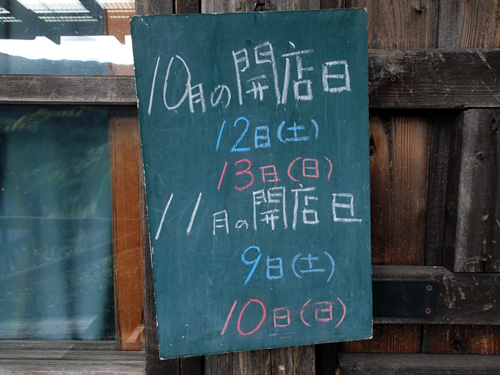 10月の開店日
12日(土)
13日(日)
11月の開店日
9日(土)
10日(日)